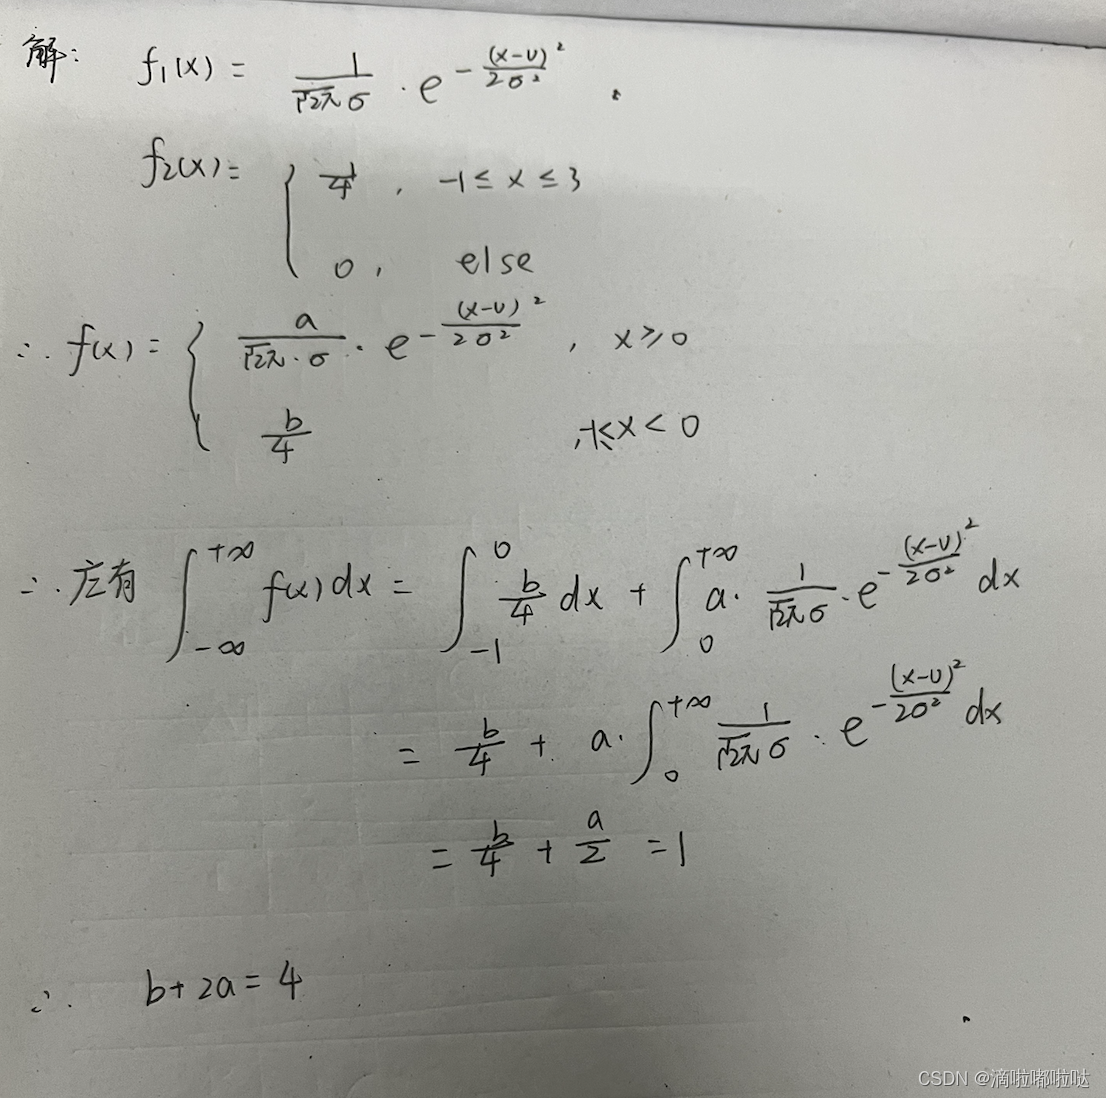 解: f₁(x) = 1/(√2π σ) · e^(-(x-u)²/(2σ²)) .
f₂(x) = { 1/4 , -1 ≤ x ≤ 3
0 , else
∴ f(x) = { a/(√2π · σ) · e^(-(x-u)²/(2σ²)) , x ≥ 0
b/4 , -1≤x < 0
∴ 应有 ∫_{-∞}^{+∞} f(x) dx = ∫_{-1}^{0} b/4 dx + ∫_{0}^{+∞} a · 1/(√2π σ) · e^(-(x-u)²/(2σ²)) dx
= b/4 + a · ∫_{0}^{+∞} 1/(√2π σ) · e^(-(x-u)²/(2σ²)) dx
= b/4 + a/2 = 1
∴ b + 2a = 4
CSDN @滴啦嘟啦哒